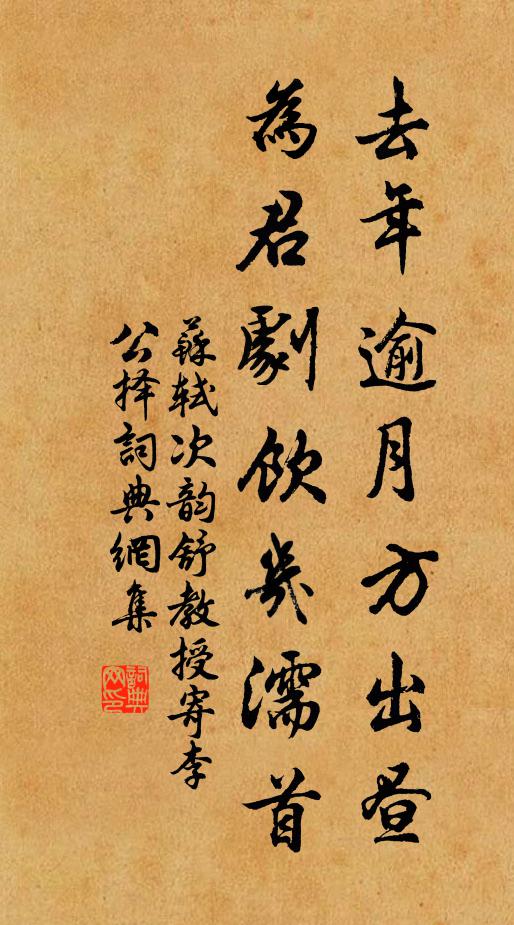 去年逾月方出昼
為君劇飲幾濡首
蘇軾次韵舒教授寄李
公择詞典網集
詞典
网印